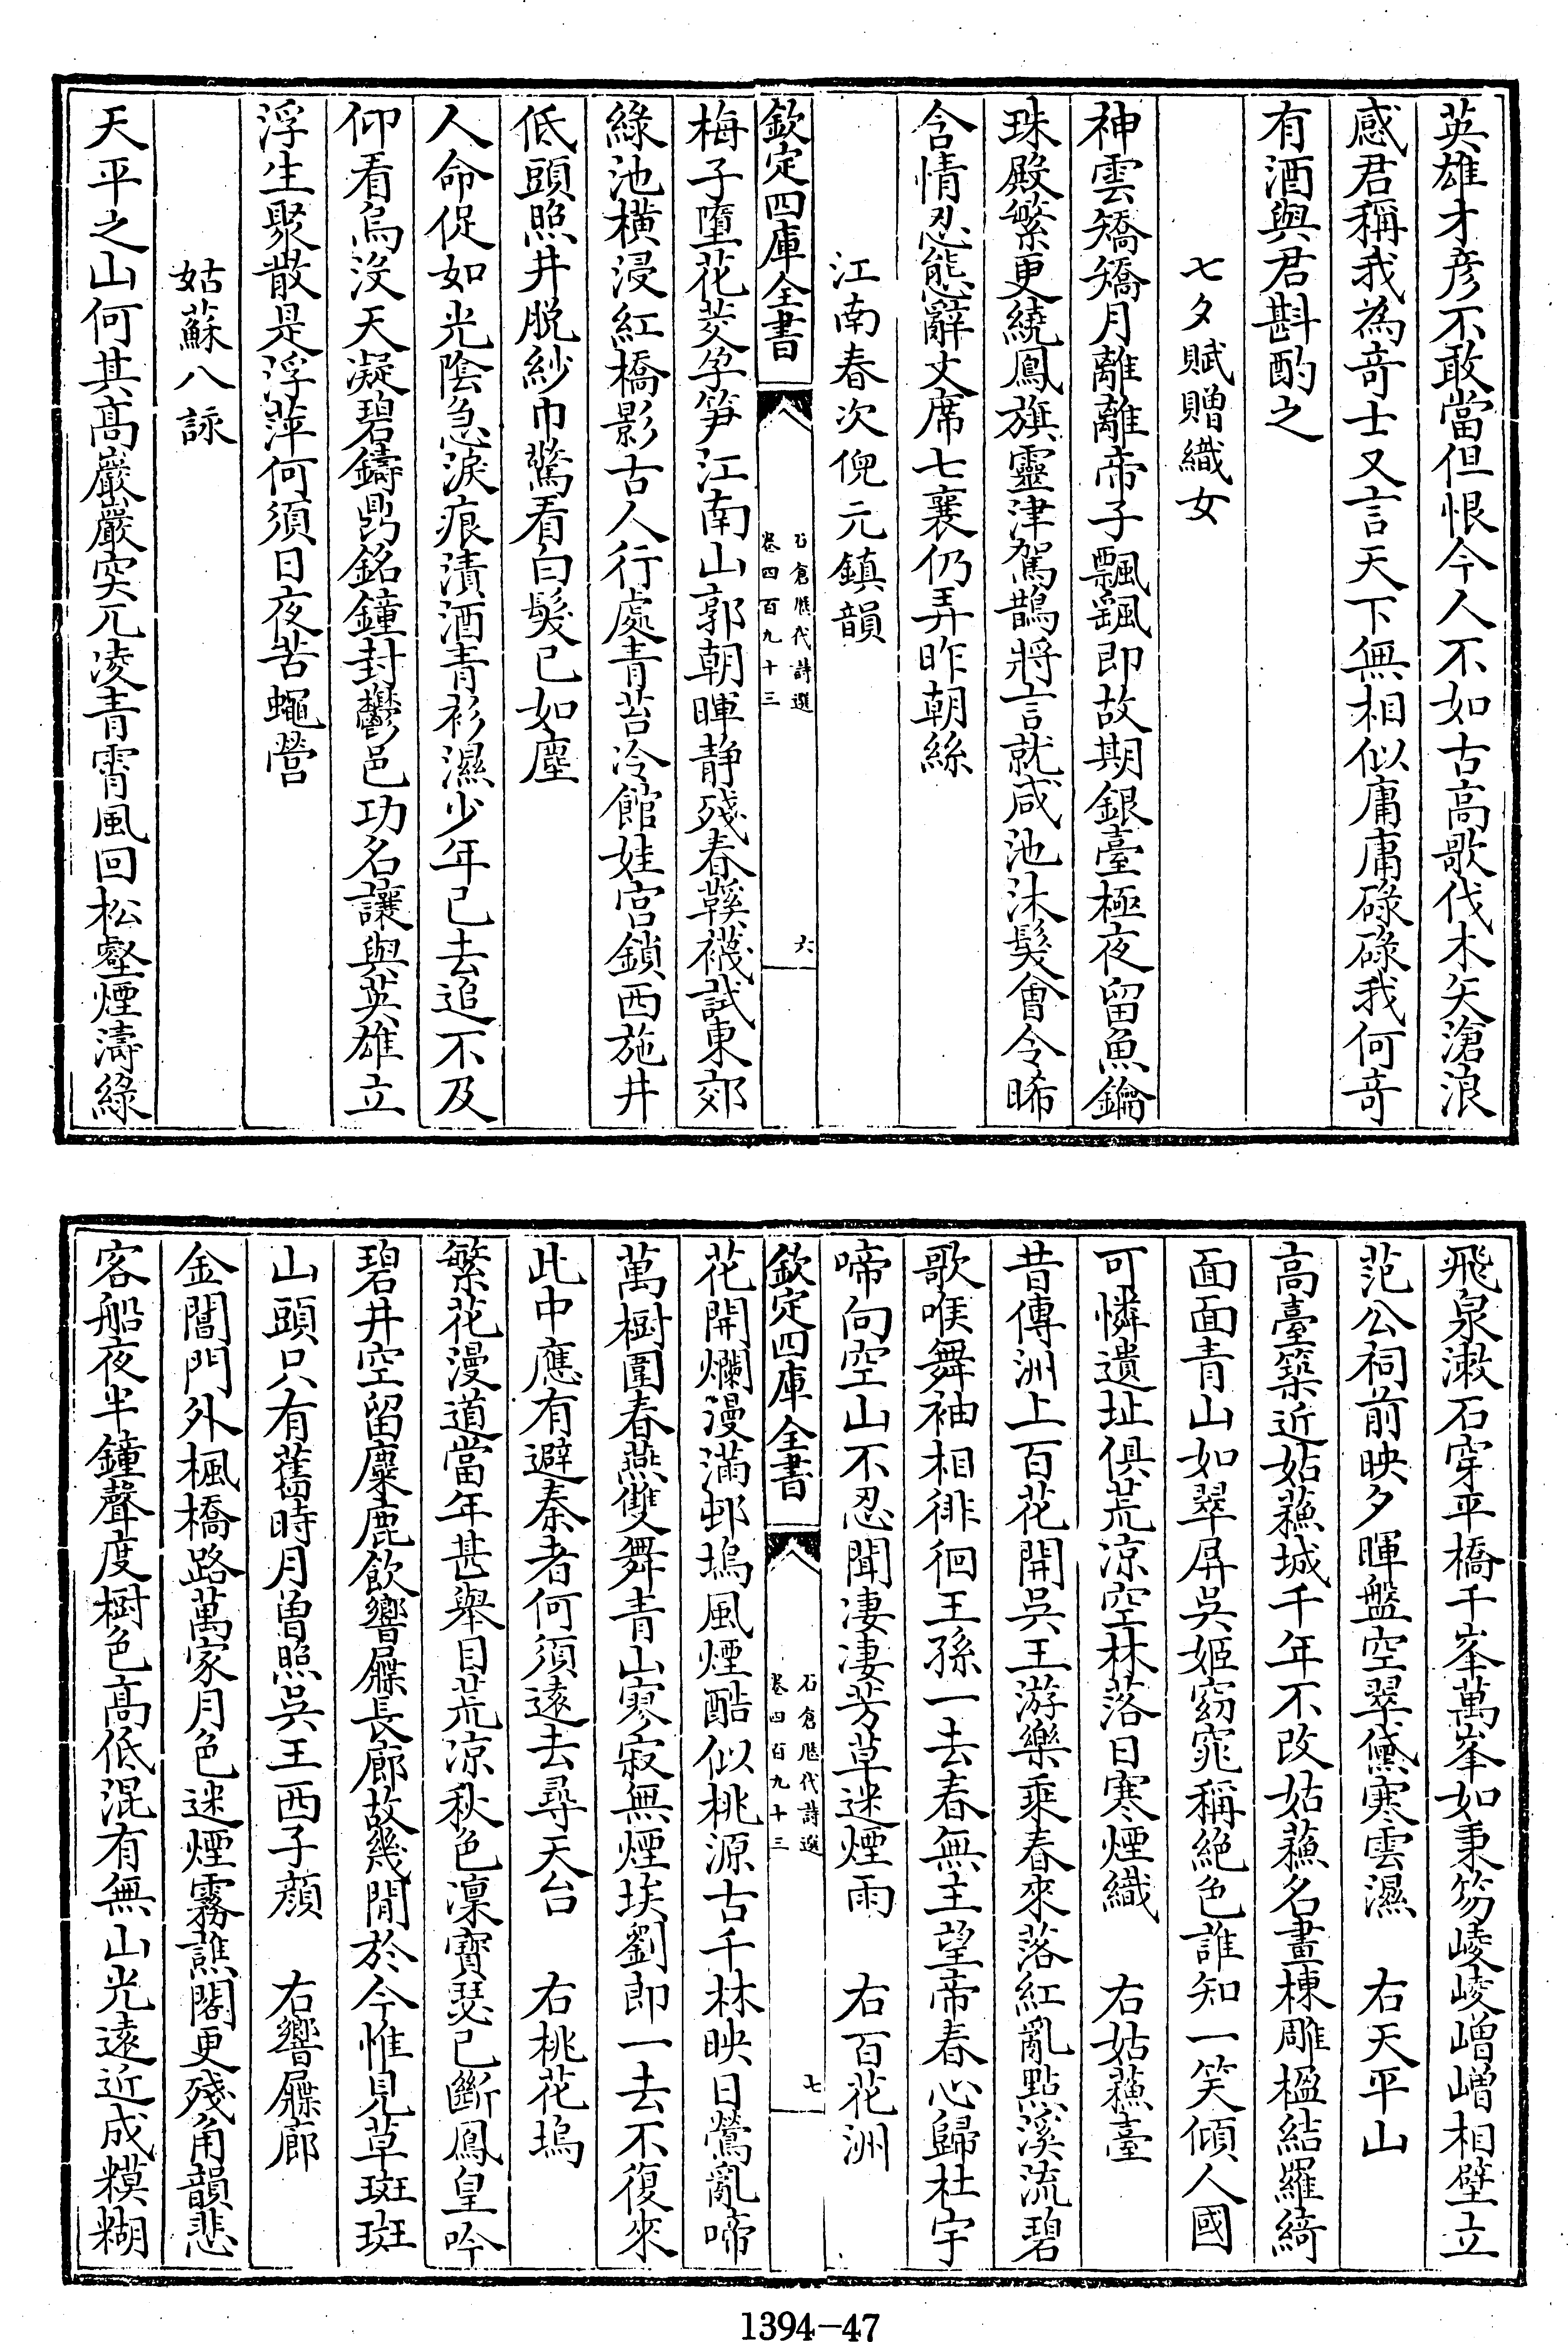 英雄才彦不敢當但恨今人不如古高歌伐木矢滄浪
感君稱我為竒士又言天下無相似庸庸碌碌我何竒
有酒與君斟酌之
七夕賦贈織女
神雲矯矯月離離帝子飄颻即故期銀臺極夜留魚鑰
珠殿繁更繞鳳旗靈津駕鵲將言就咸池沐髮會令晞
含情忍態辭文席七襄仍弄昨朝絲
江南春次倪元鎮韻
欽定四庫全書
石倉歴代詩選
卷四百九十三
六
梅子墮花茭孕笋江南山郭朝暉静殘春鞵襪試東郊
綠池横浸紅橋影古人行處青苔冷館娃宫鎖西施井
低頭照井脱紗巾驚看白髮已如塵
人命促如光陰急淚痕漬酒青衫濕少年已去追不及
仰看烏沒天凝碧鑄鼎銘鐘封鬱邑功名讓與英雄立
浮生聚散是浮萍何須日夜苦蠅營
姑蘇八詠
天平之山何其髙巖巖突兀凌青霄風回松壑煙濤綠
飛泉漱石穿平橋千峯萬峯如秉笏崚崚嶒嶒相壁立
范公祠前映夕暉盤空翠黛寒雲濕　右天平山
高臺築近姑蘓城千年不改姑蘓名畫棟雕楹結羅綺
面面青山如翠屏吳姬窈窕稱絶色誰知一笑傾人國
可憐遺址俱荒凉空林落日寒煙織　右姑蘓臺
昔傳洲上百花開吳王游樂乘春來落紅亂點溪流碧
歌喉舞袖相徘徊王孫一去春無主望帝春心歸杜宇
啼向空山不忍聞凄凄芳草迷煙雨　右百花洲
欽定四庫全書
石倉歴代詩選
卷四百九十三
七
花開爛漫滿邨塢風煙酷似桃源古千林映日鶯亂啼
萬樹圍春燕雙舞青山寥寂無煙埃劉郎一去不復來
此中應有避秦者何須遠去尋天台　右桃花塢
繁花漫道當年甚舉目荒凉秋色凜寳瑟已斷鳳皇吟
碧井空留麋鹿飲響屧長廊故幾間於今惟見草斑斑
山頭只有舊時月曽照吳王西子顔　右響屧廊
金閶門外楓橋路萬家月色迷煙霧譙閣更殘角韻悲
客船夜半鐘聲度樹色髙低混有無山光遠近成糢糊
1394-47